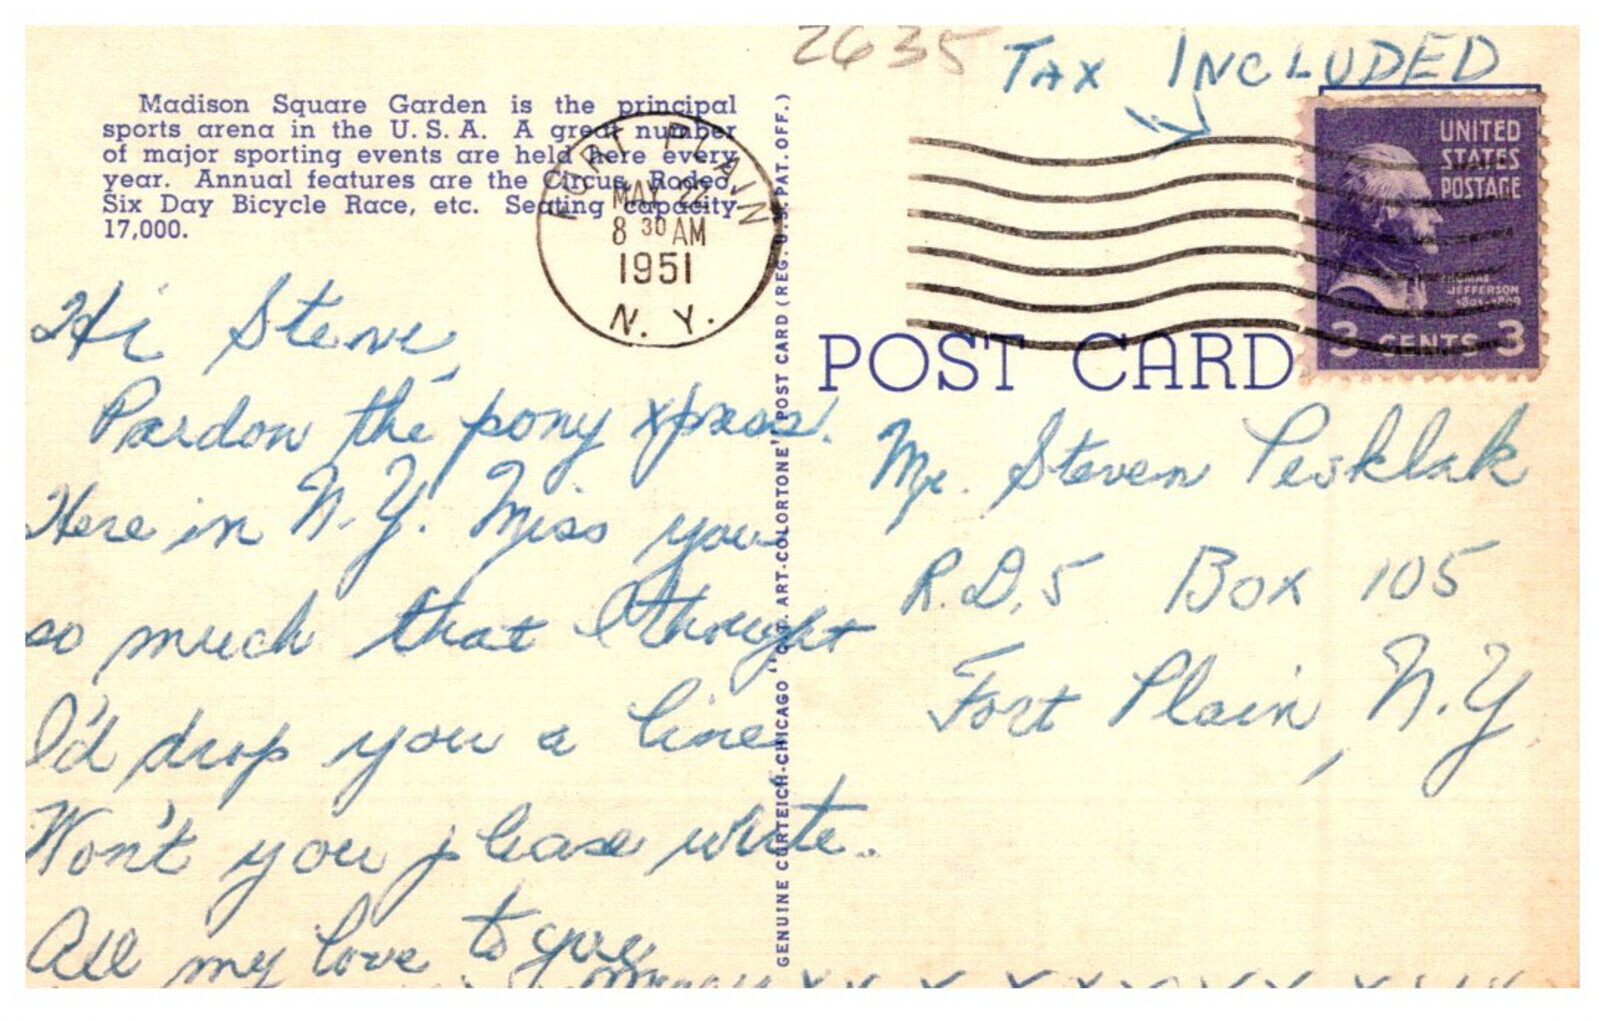 2635 TAX INCLUDED
Madison Square Garden is the principal
sports arena in the U.S.A. A great number
of major sporting events are held here every
year. Annual features are the Circus, Rodeo,
Six Day Bicycle Race, etc. Seating capacity
17,000.
FORT PLAIN
MAY 22
8 30 AM
1951
N. Y.
UNITED
STATES
POSTAGE
THOMAS
JEFFERSON
1801-1809
3 CENTS 3
POST CARD
GENUINE CURTEICH-CHICAGO "C.T. ART-COLORTONE" POST CARD (REG. U.S. PAT. OFF.)
Hi Steve,
Pardon the pony xpress.
Here in N.Y. Miss you
so much that I thought
I'd drop you a line
Won't you please write.
All my love to you
x x x x x x x x
Mr. Steven Pesklak
R.D.5 Box 105
Fort Plain, N.Y